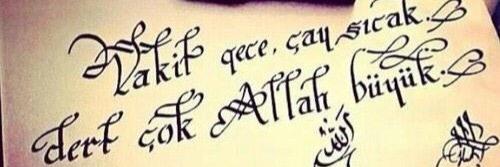 Vakit gece, çay sıcak.
dert çok Allah büyük.
الله